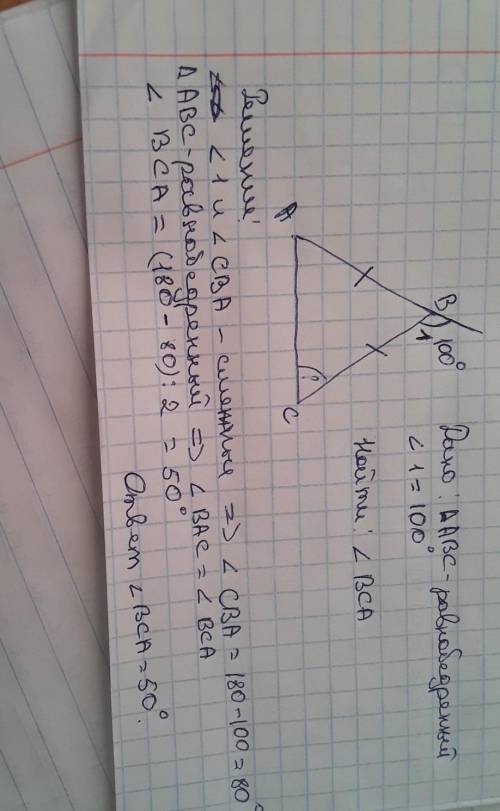 Дано: ΔABC - равнобедренный
∠1 = 100°
Найти: ∠BCA
B
1
100°
A
C
?
Решение:
∠1 и ∠CBA - смежные => ∠CBA = 180-100 = 80°
ΔABC - равнобедренный => ∠BAC = ∠BCA
∠BCA = (180-80):2 = 50°
Ответ ∠BCA = 50°.